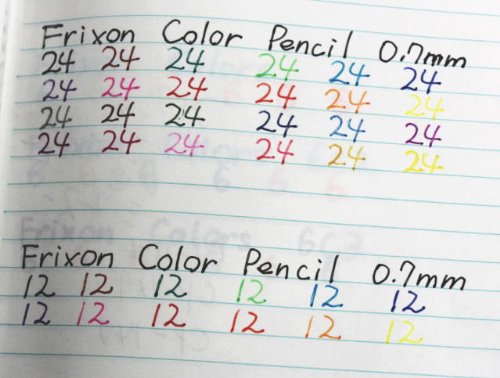 Frixon Color Pencil 0.7mm
24 24 24 24 24 24
24 24 24 24 24 24
24 24 24 24 24 24
24 24 24 24 24 24
Frixon Colors
Frixon Color Pencil 0.7mm
12 12 12 12 12 12
12 12 12 12 12 12